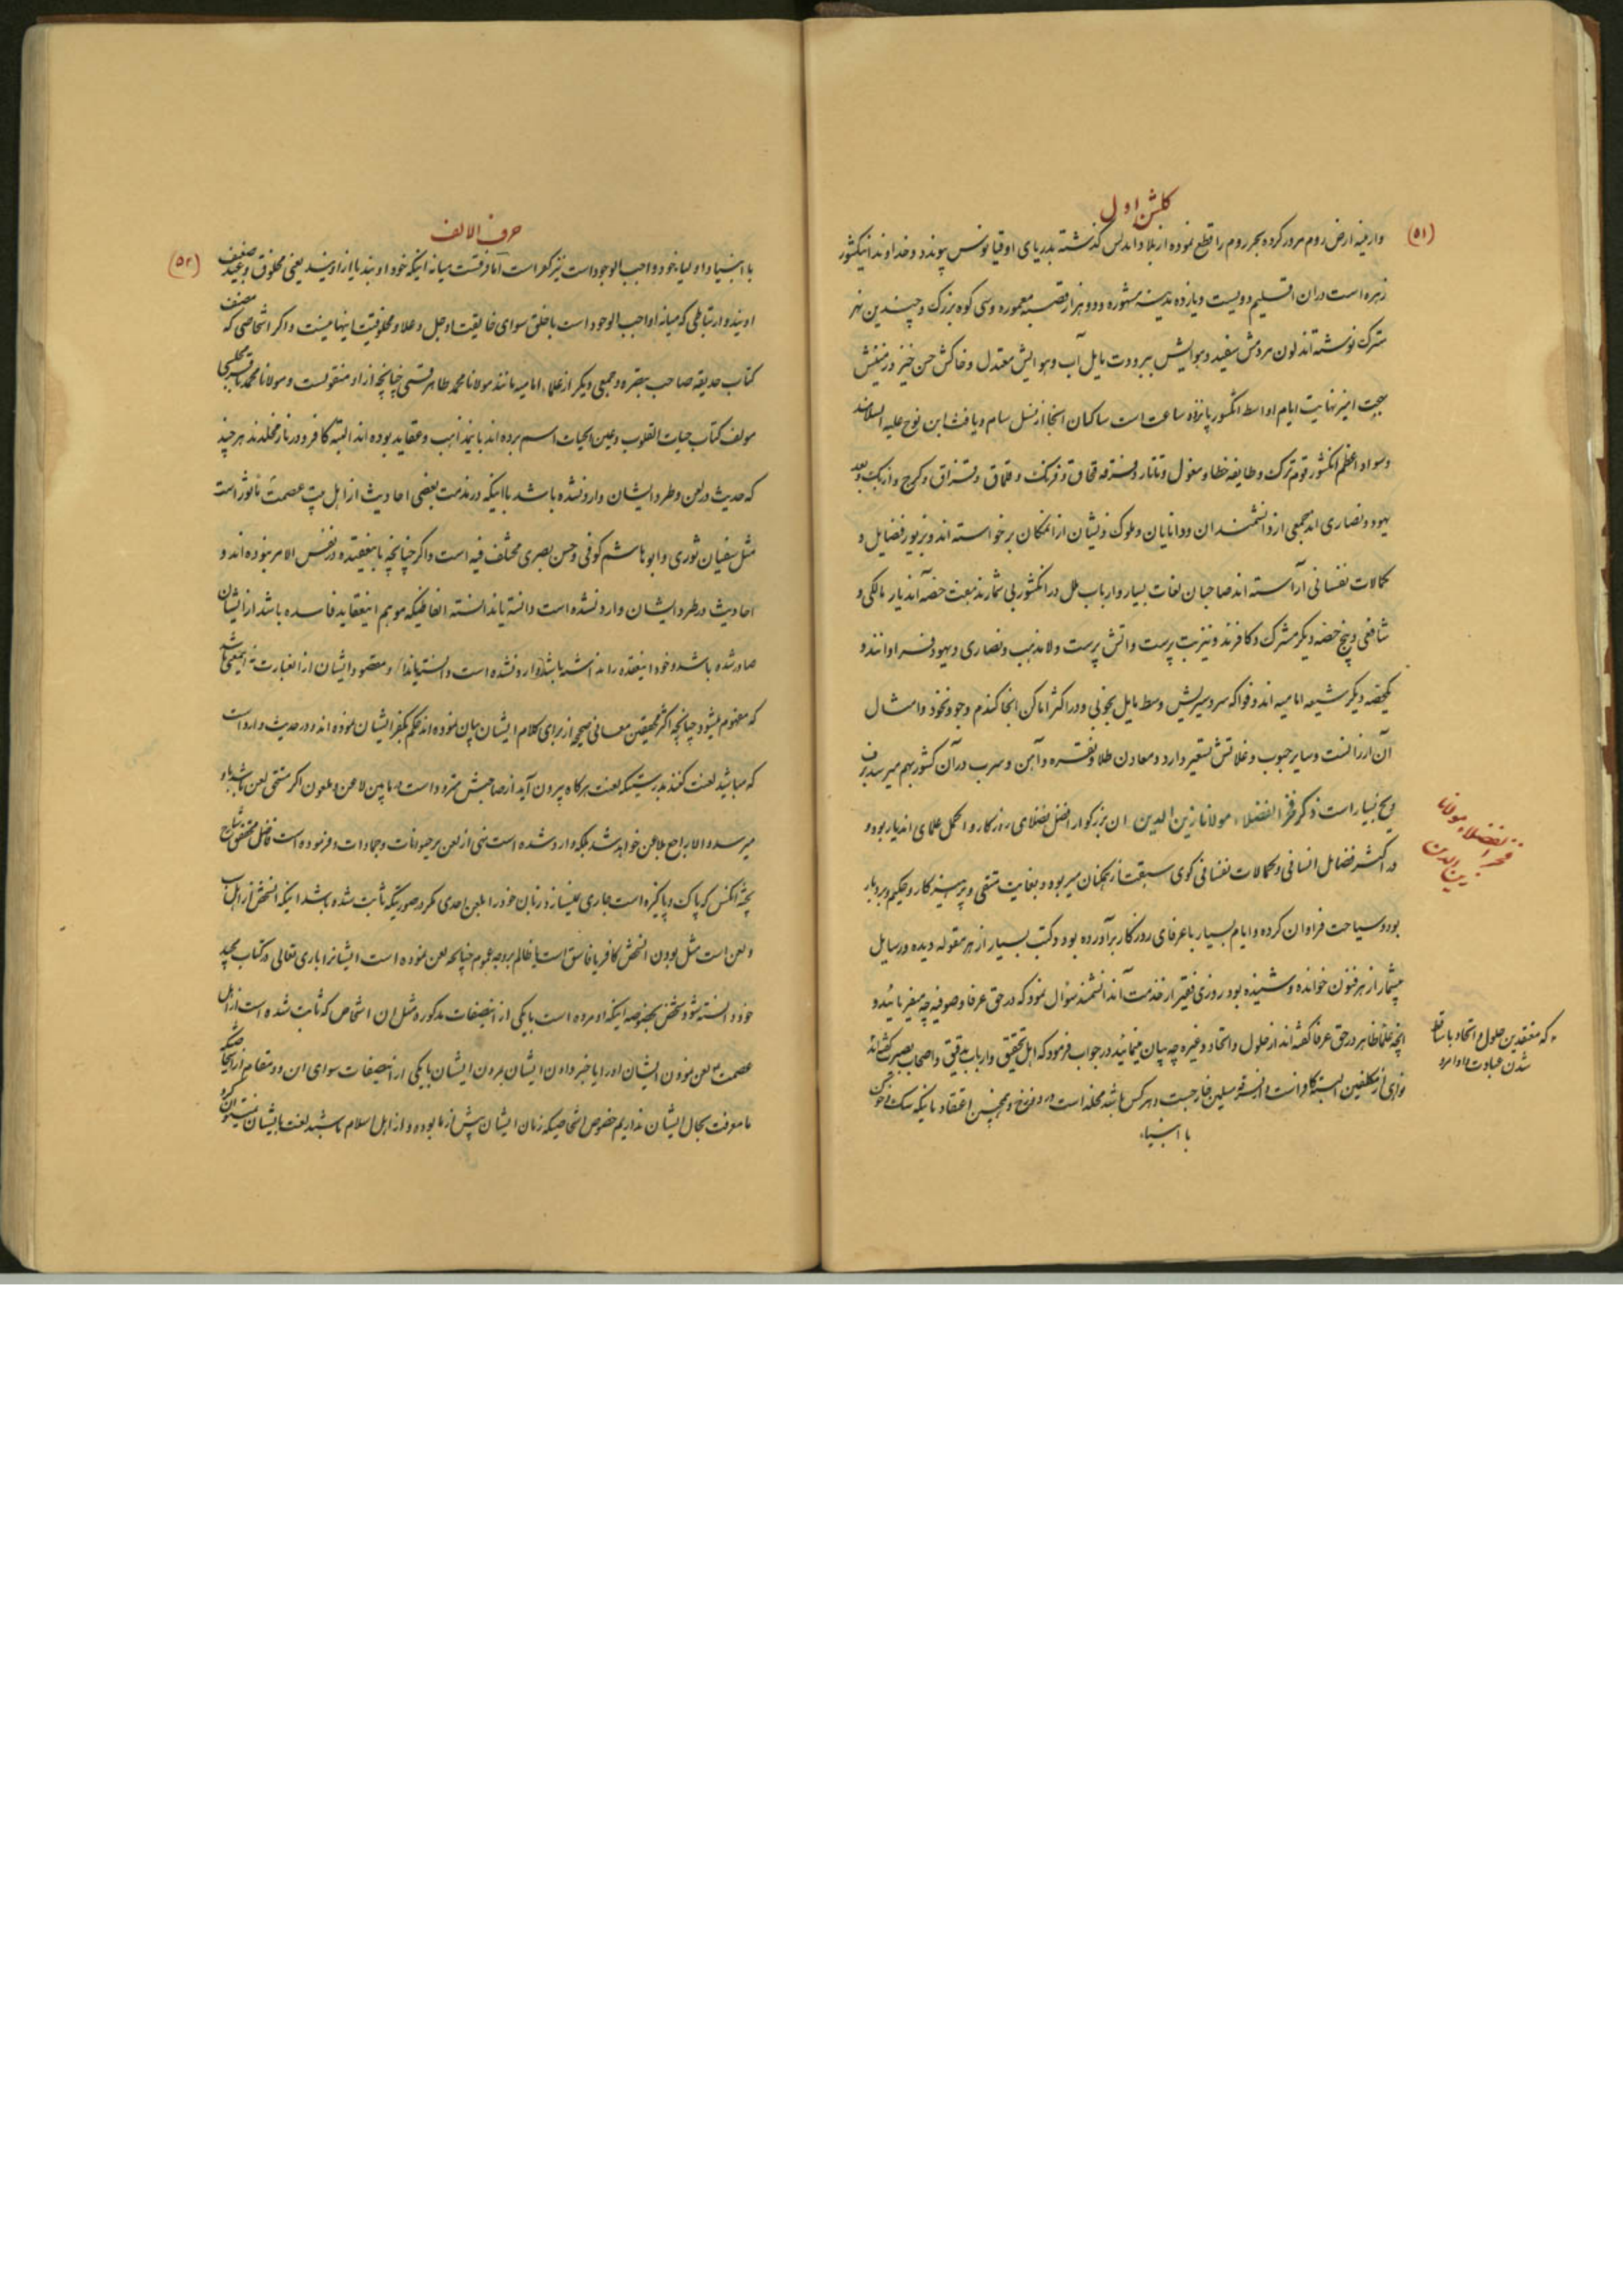 (۵۱)
کلشن اول
وارمنیه ارض روم مرور کرده بحر روم را قطع نموده از بلاد اندلس کذشته بدریای اوقیانوس پیوندد و خداوند اینکشور
زهره است دران اقلیم دویست ویازده مدینه مشهوره ودو هزار قصبه معموره وسی کوه بزرک و چندین نهر
سترک نوشته اند لون مردمش سفید وهوایش ببرودت مایل آب وهوایش معتدل وخاکش حسن خیز و زمینش
بهجت امیز نهایت ایام اواسط انکشور پانزده ساعت است ساکنان انجا از نسل سام ویافث ابن نوح علیه السلامند
وسواد اعظم انکشور قوم ترک وطایفه خطا ومغول وتاتار وفرقه قبچاق وفرنک و قلماق وقزاق وکرج وازبک وبعد
یهود ونصاری اند جمعی از دانشمندان ودانایان وملوک ذیشان از انمکان برخواسته اند وبزیور فضایل و
کمالات نفسانی آراسته اند صاحبان لغات بسیار وارباب ملل در انکشور بی شمارند هفت حصه آندیار مالکی و
شافعی وپنج حصه دیکر مشرک وکافرند ونیز بت پرست واتش پرست ولامذهب ونصاری ویهود فراوانند و
یکحصه دیکر شیعه امامیه اند وفواکه سردسیریش وسط مایل بخوبی ودر اکثر اماکن انجا کندم وجو ونخود وامثال
آن ارزانست وسایر حبوب وغلاتش تسعیر دارد ومعادن طلا ونقره وآهن وسرب در آن کشور بهم میرسد برف
ویخ بسیار است ذکر فخر الفضلاء مولانا زین الدین ان بزرکوار افضل فضلای روزکار و اکمل علمای اندیار بود و
در اکثر فضایل انسانی وکمالات نفسانی کوی سبقت از همکنان میربود وبغایت متقی و پرهیزکار وحکیم وبردبار
بود وسیاحت فراوان کرده وایام بسیار با عرفای روزکار برآورده بود وکتب بسیار از هر مقوله دیده ورسایل
بیشمار از هر فنون خوانده وشنیده بود روزی فقیر از خدمت آندانشمند سوال نمود که در حق عرفا وصوفیه چه میفرمائید و
انچه علما ظاهر در حق عرفا کفته اند از حلول واتحاد وغیره چه بیان مینمائید در جواب فرمود که اهل تحقیق وارباب تدقیق واصحاب بصیر کفته اند
ونواهی از مکلفین البته کافر است واز فرقه مسلمین خارجست وهر کس باشد مخلد است در دوزخ وهمچنین اعتقاد بانیکه
با انبیاء
فخر الفضلاء مولانا
زین الدین
که معتقدین حلول و اتحاد با ساقط
شدن عبادت واوامر
(۵۲)
حرف الالف
با انبیا واولیا خود واجب الوجود است نیز کفر است اما فرقست میانه اینکه خود اویند یا از اویند یعنی مخلوق وعبید ضعیف
اویند وارتباطی که میانه واجب الوجود است با خلق سوای خالقیت او جل وعلا ومخلوقیت اینها نیست واکر اشخاصی که مصنف
کتاب حدیقه صاحب تبصره وجمعی دیکر از علماء امامیه مانند مولانا محمد طاهر قمی چنانچه از او منقولست ومولانا محمد باقر مجلسی
مولف کتاب حیات القلوب وعین الحیات اسم برده اند باینمذاهب وعقاید بوده اند البته کافر و در نار مخلدند هر چند
که حدیث در لعن وطرد ایشان وارد نشده باشد با اینکه در مذمت بعضی احادیث از اهل بیت عصمت ماثور است
مثل سفیان ثوری وابو هاشم کوفی وحسن بصری مختلف فیه است واکر چنانچه باینعقیده در نفس الامر نبوده اند و
احادیث در طرد ایشان وارد نشده است دانسته یا ندانسته الفاظیکه موهم اینعقاید فاسده باشد از ایشان
صادر شده باشد وخود اینعقیده را نداشته باشند وارد نشده است دانسته یا ندانسته ومقصود ایشان از انعبارت نه اینمعنی باشد
که مفهوم میشود چنانچه اکثر محققین معانی صحیحه از برای کلام ایشان بیان نموده اند حکم بکفر ایشان ننموده اند و در حدیث وارد است
که مباشید لعنت کننده بدرستیکه لعنت هرکاه بیرون آید از صاحبش متردد است ما بین لاعن و ملعون اکر مستحق لعن باشد باو
میرسد والا راجع بلاعن خواهد شد بلکه وارد شده است نهی از لعن بر حیوانات وجمادات وفرموده است فاضل محقق
انکس که پاک وپاکیزه است جاری نمیسازد زبان خود را بلعن احدی مکر در صورتیکه ثابت شده باشد اینکه انشخص از اهل
ولعن است مثل بودن انشخص کافر یا فاسق است یا ظالم بر وجه عموم چنانچه لعن نموده است ایشانرا باری تعالی در کتاب مجید
خود ودانسته شود شخص بخصوصه اینکه او مرده است بایکی از اینصفات مذکوره مثل ان اشخاص که ثابت شده است از اهل
عصمت لعن نمودن ایشان او را یا خبر دادن ایشان بمردن ایشان بایکی از اینصفات سوای ان دو مقام
ما معرفت بحال ایشان نداریم خصوص اشخاصیکه زمان ایشان پیش از ما بوده و از اهل اسلام باشند لعنت بایشان نمیتوان کرد